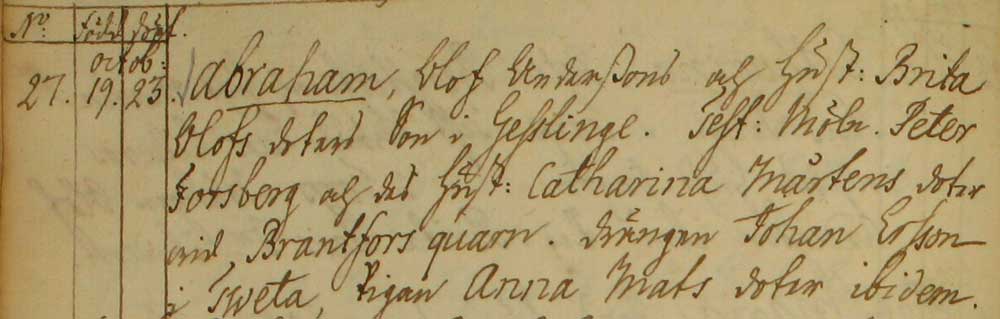 No. Född döpt.
octob:
27. 19. 23. Abraham, Olof Anderßons och Hust: Brita
Olofs doters Son i Gesslinge. Test: Möln. Peter
Forsberg och des Hust: Catharina Mårtens doter
vid Brantfors quarn. drängen Johan Ersson
i Tweta, Pigan Anna Mats doter ibidem.